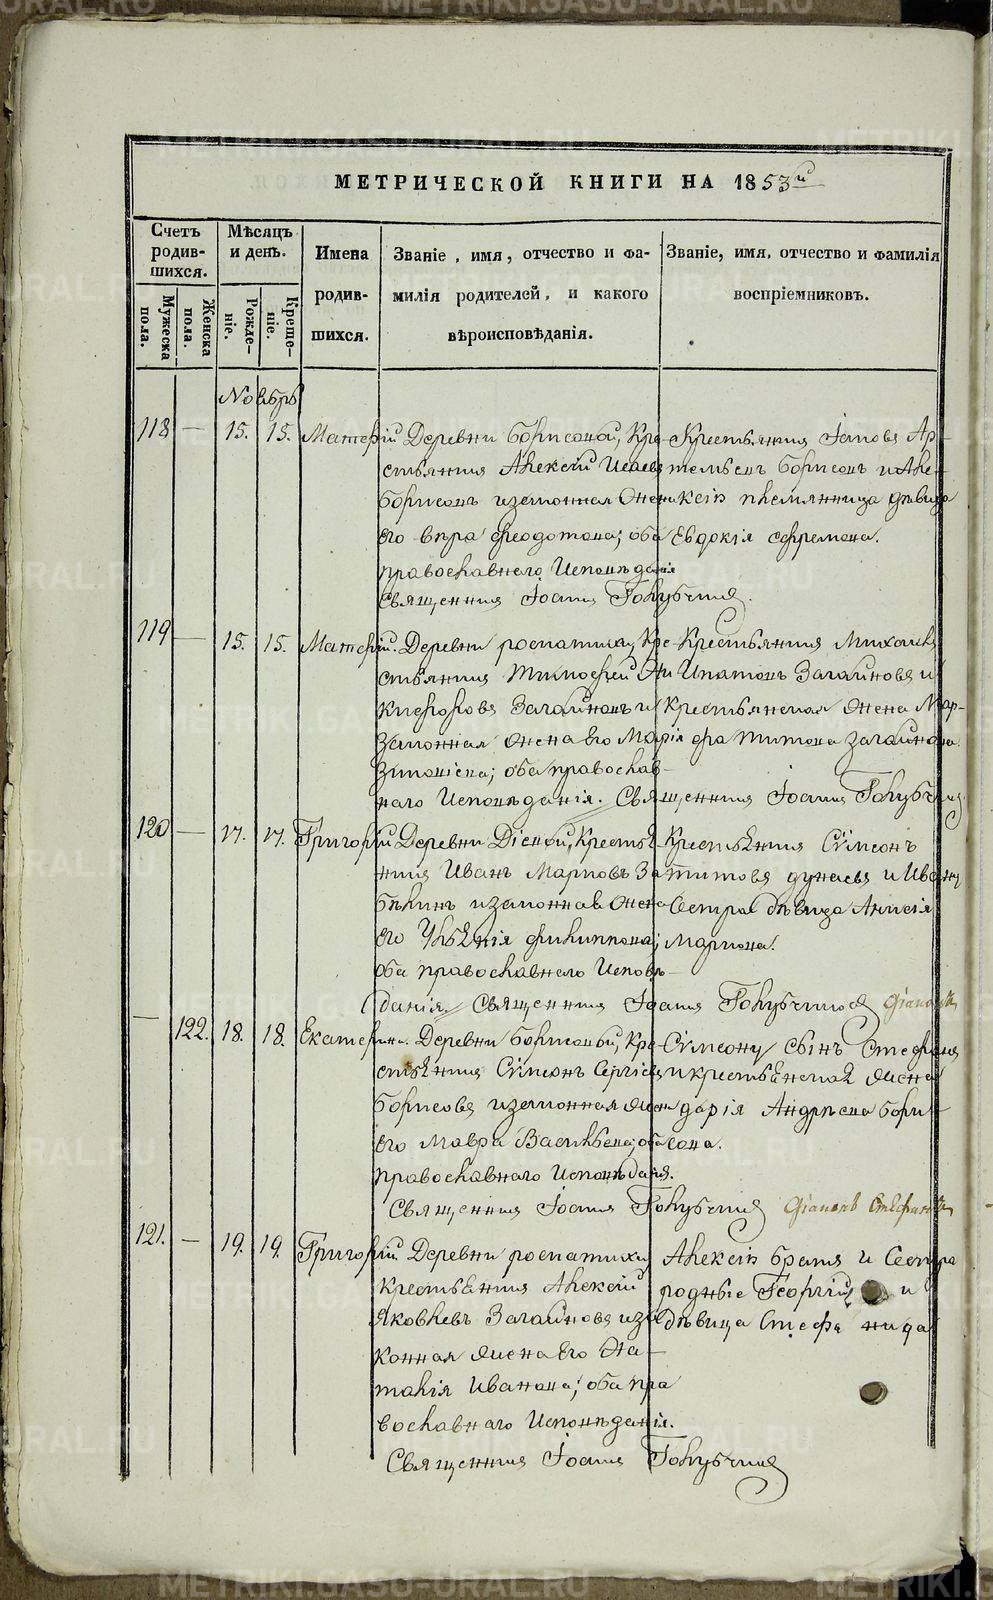 МЕТРИЧЕСКОЙ КНИГИ НА 1853й
Счетъ родив-шихся.
Мужеска пола.
Женска пола.
Мѣсяцъ и день.
Рожде-ніе.
Креще-ніе.
Имена родив-шихся.
Званіе, имя, отчество и фа-
милія родителей, и какого
вѣроисповѣданія.
Званіе, имя, отчество и фамилія
воспріемниковъ.
Ноябрь
118 — 15. 15. Матѳій
Деревни Борисовой, Кре-
стьянинъ Алексій Исаевъ
Борисовъ и законная жена
его Вѣра Феодотова; оба
православнаго Исповѣданія
Священникъ Іоаннъ Голубчиковъ.
Крестьянинъ Іаковъ Ар-
темьевъ Борисовъ и Але-
ксія племянница дѣвица
Евдокія Ефремова.
119 — 15. 15. Матѳій.
Деревни роспатихи, Кре-
стьянинъ Тимоѳей Ни
кифоровъ Загайновъ и
законная жена его Марія
оба православ-
наго Исповѣданія. Священникъ Іоаннъ Голубчиковъ
Крестьянинъ Михаилъ
Ипатовъ Загайновъ и
Крестьянская жена Мар-
фа Титова Загайнова.
120 — 17. 17. Григорій
Деревни Діевой, Крестья
нинъ Иванъ Марковъ За
бѣлинъ и законная жена
его Улянія Филиппова;
оба православнаго Исповѣ-
данія. Священникъ Іоаннъ Голубчиковъ
Крестьянинъ Сімеонъ
Титовъ дунаевъ и Ивану
Сестра дѣвица Анисія
Маркова.
— 122. 18. 18. Екатерина.
Деревни Борисовой, Кре-
стьянинъ Сімеонъ Сергіевъ
Борисовъ и законная жена
его Мавра Васильева; оба
православнаго Исповѣданія.
Священникъ Іоаннъ Голубчиковъ
Сімеону сынъ Стефанъ
и крестьянская жена
дарія Андрѣева Бори-
сова.
121. — 19. 19. Григорій.
Деревни роспатихи
Крестьянинъ Алексій
Яковлевъ Загайновъ и за
конная жена его На-
талія Иванова; оба пра
вославнаго Исповѣданія.
Священникъ Іоаннъ Голубчиковъ
Алексія братъ и Сестра
родные Георгій и
дѣвица Стефанида